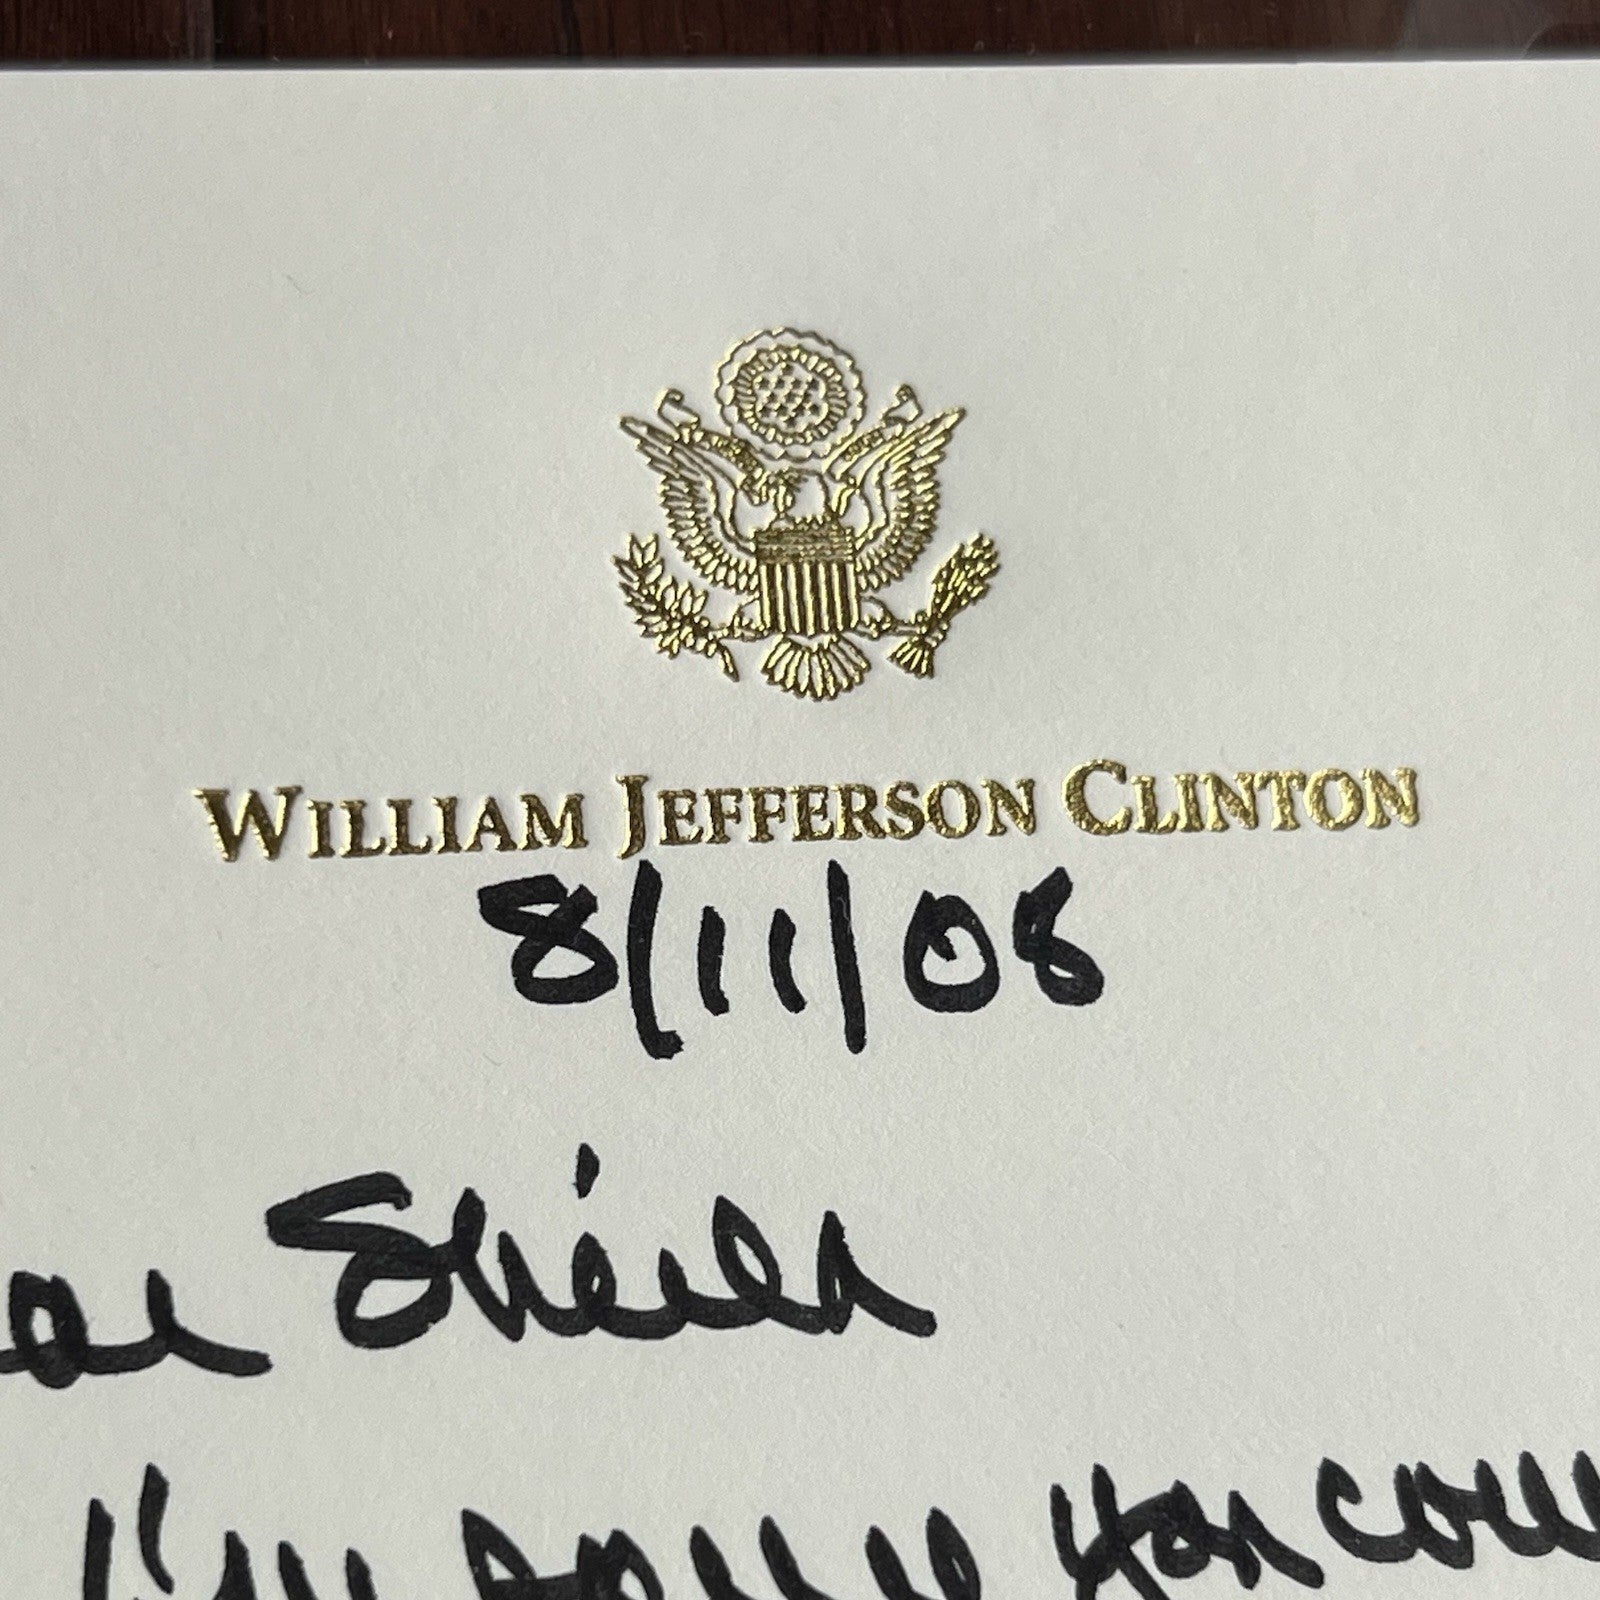 WILLIAM JEFFERSON CLINTON
8/11/08
ar Sheila
I'm sorry you cou